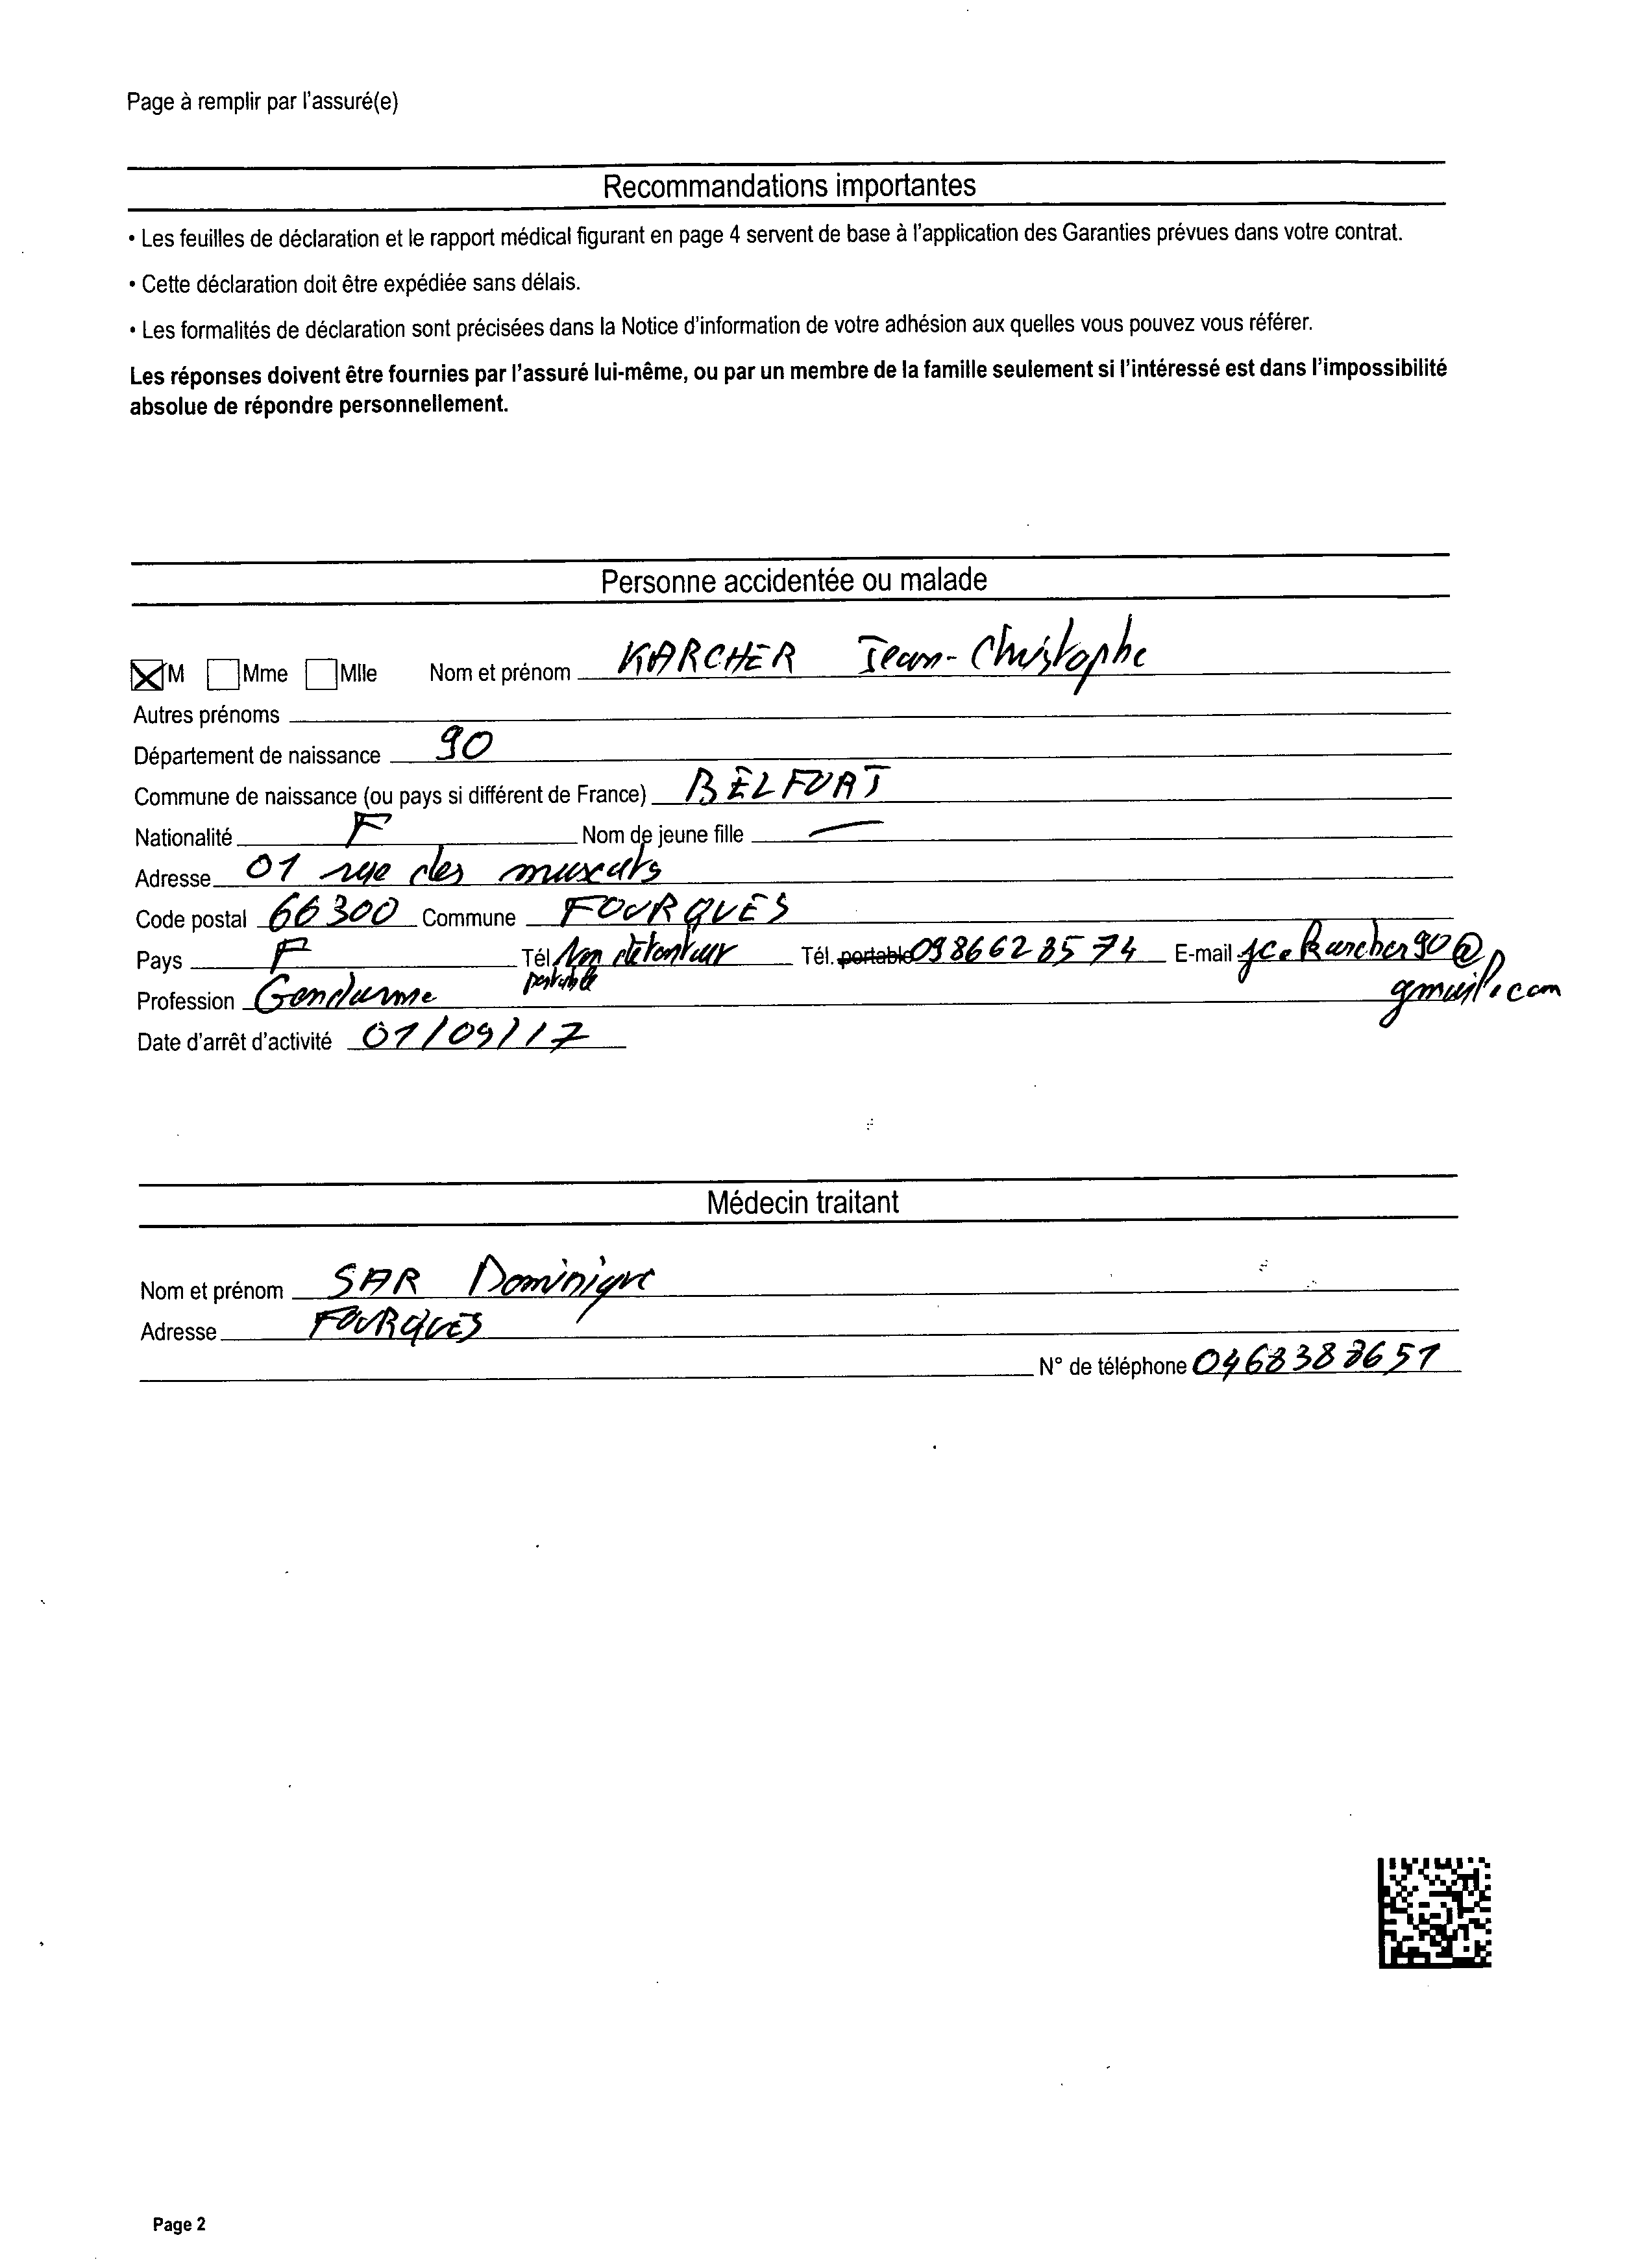 Page à remplir par l'assuré(e)
Recommandations importantes
• Les feuilles de déclaration et le rapport médical figurant en page 4 servent de base à l'application des Garanties prévues dans votre contrat.
• Cette déclaration doit être expédiée sans délais.
• Les formalités de déclaration sont précisées dans la Notice d'information de votre adhésion aux quelles vous pouvez vous référer.
Les réponses doivent être fournies par l'assuré lui-même, ou par un membre de la famille seulement si l'intéressé est dans l'impossibilité
absolue de répondre personnellement.
Personne accidentée ou malade
M Mme Mlle Nom et prénom KARCHER Jean-Christophe
Autres prénoms
Département de naissance 90
Commune de naissance (ou pays si différent de France) BELFORT
Nationalité F Nom de jeune fille —
Adresse 01 rue des muscats
Code postal 66300 Commune FOURQUES
Pays F Tél. Non détenteur Tél. portable 0986628574 E-mail jc.karcher90@
portable gmail.com
Profession Gendarme
Date d'arrêt d'activité 01/09/17
Médecin traitant
Nom et prénom SAR Dominique
Adresse FOURQUES
N° de téléphone 0468388651
Page 2